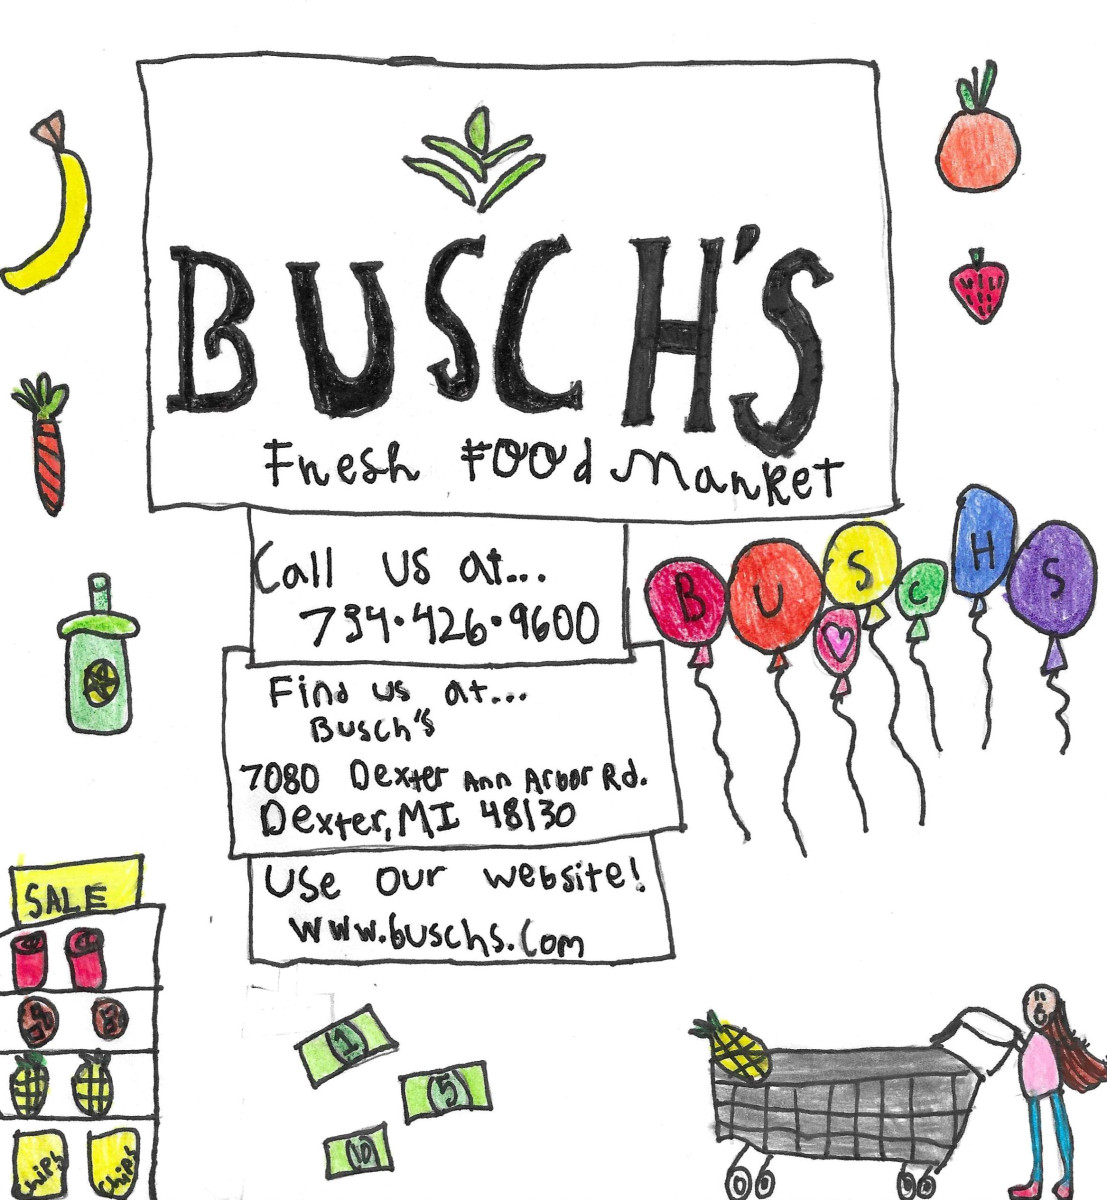 BUSCH'S
Fresh Food Market
Call us at...
734.426.9600
B U S C H S
Find us at...
Busch's
7080 Dexter Ann Arbor Rd.
Dexter, MI 48130
Use our website!
www.buschs.com
SALE
chips chips
1
5
10